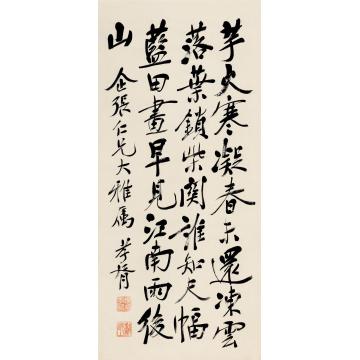 芋火寒凝春未還凍雲
落葉鎖柴關誰知尺幅
藍田畫早見江南雨後
山
企張仁兄大雅屬 孝胥